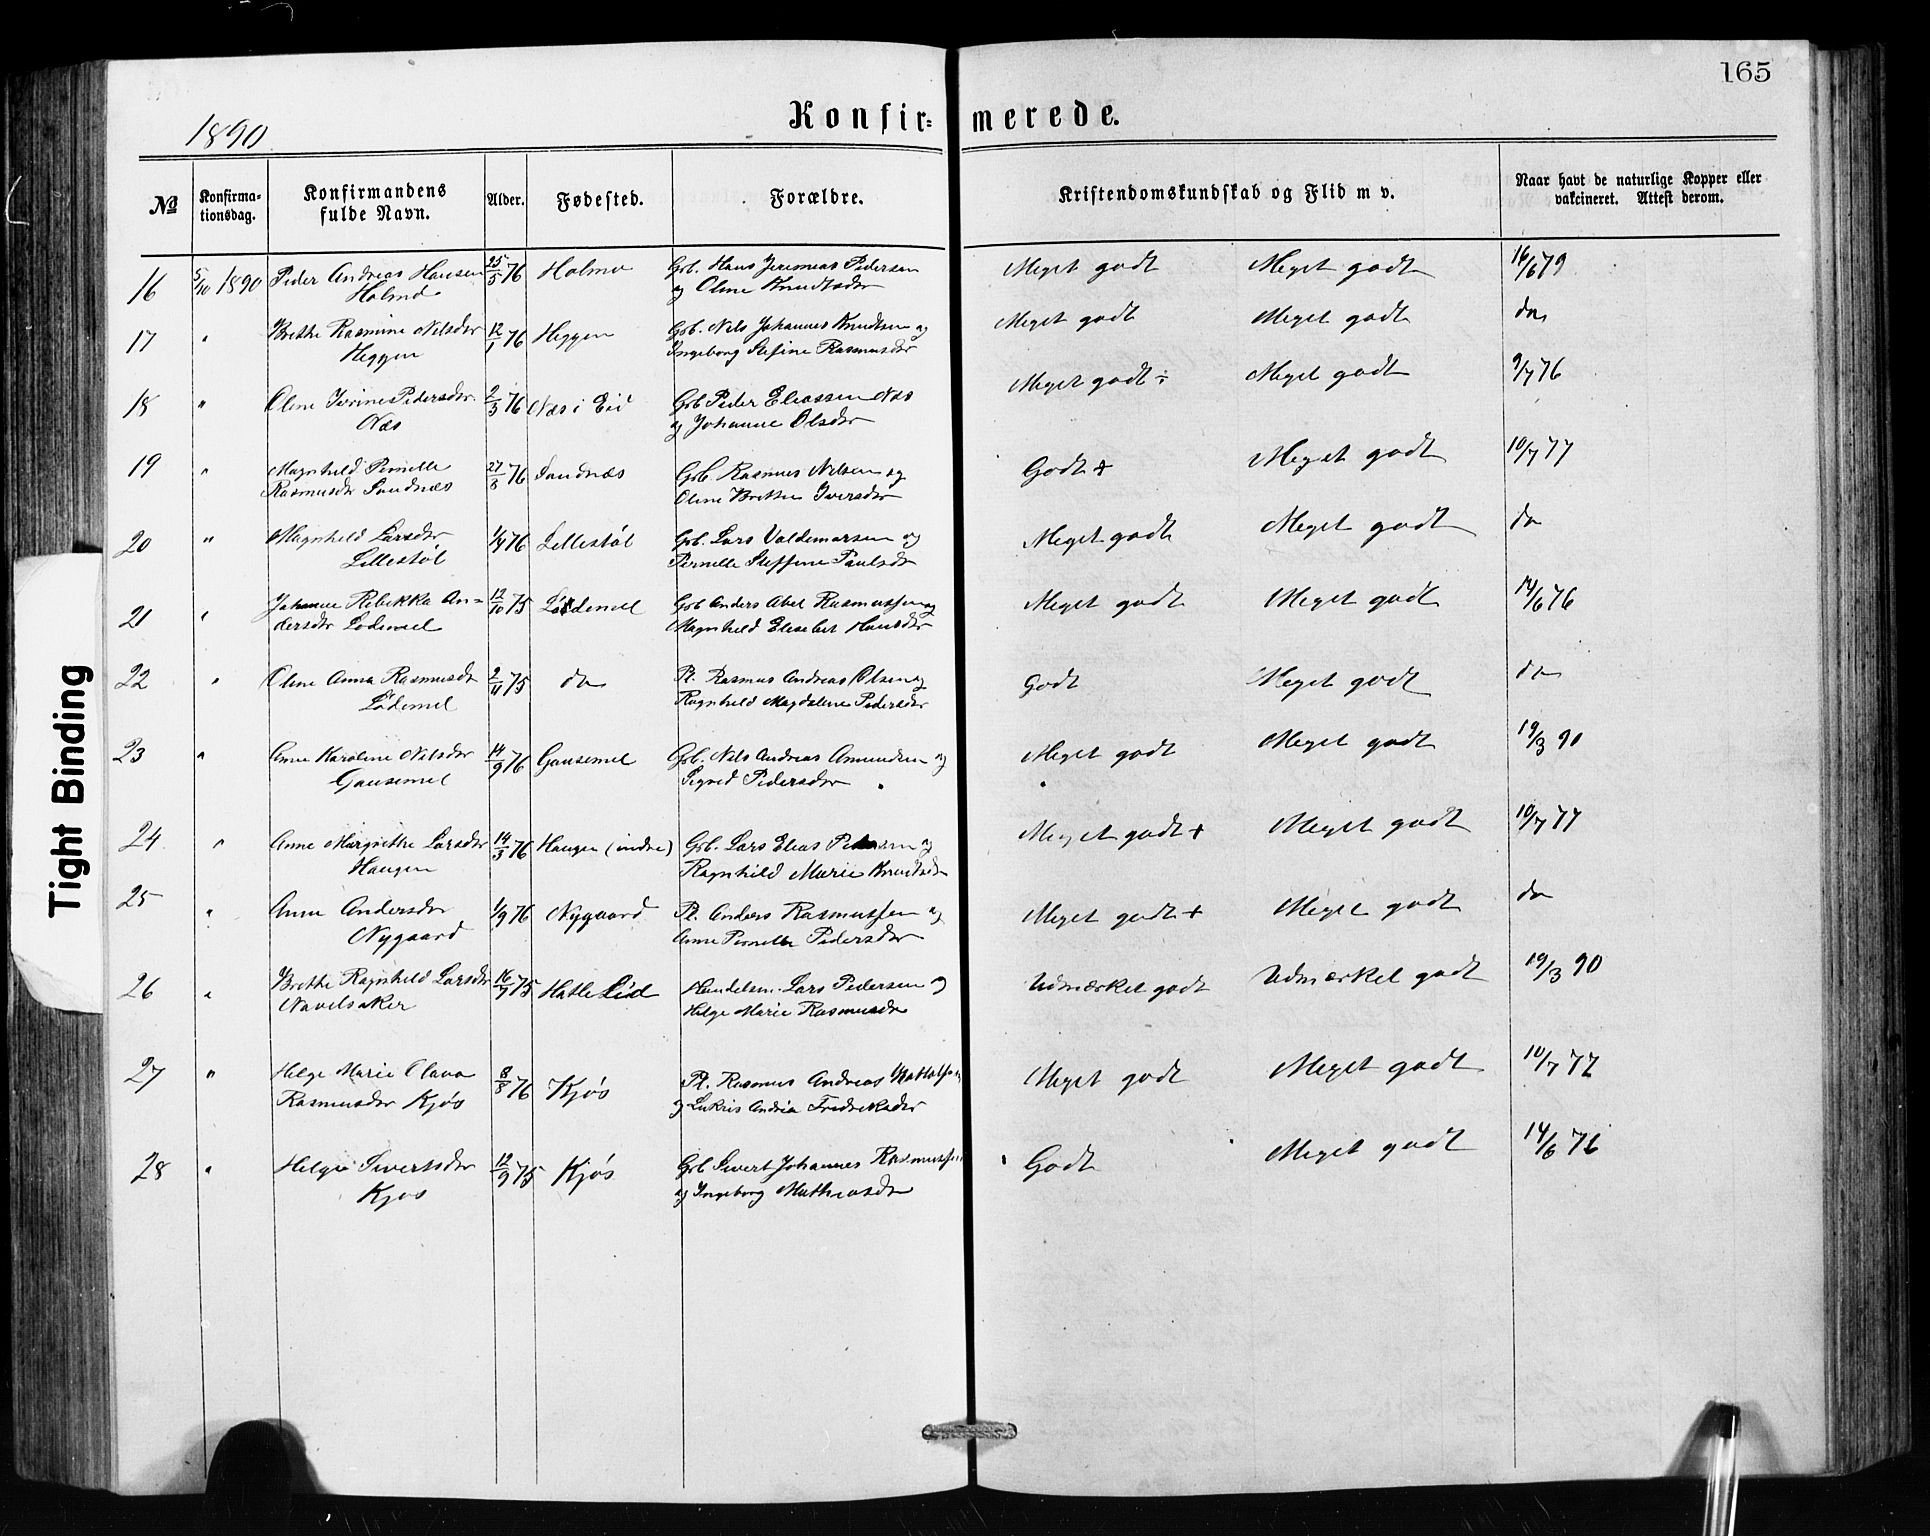 165
1890
Konfir= merede.
№ Konfirma-tionsdag. Konfirmandens fulde Navn. Alder. Fødested. Forældre. Kristendomskundskab og Flid m v. Naar havt de naturlige Kopper eller vakcineret. Attest derom.
16 5/10 1890 Peder Andreas Hansen 25/5 76 Holmo Grb. Hans Jeremias Pedersen Meget godt Meget godt 16/6 79
Holmø og Oline Knudtsdtr
17 " Brethe Rasmine Nilsdtr 12/1 76 Heggen Grb. Nils Johannes Knudtsen og Meget godt Meget godt do
Heggen Ingeborg Stefine Rasmusdtr
18 " Oline Iverine Pedersdtr 2/3 76 Næs i Eid Grb Peder Eliassen Næs Meget godt ÷ Meget godt 9/7 76
Næs og Johanne Olsdtr
19 " Magnhild Pernille 27/8 76 Sandnæs Grb. Rasmus Nilsen og Godt + Meget godt 10/7 77
Rasmusdtr Sandnæs Oline Brethe Iversdtr
20 " Magnhild Larsdtr 1/4 76 Lillestøl Grb. Lars Valdemarsen og Meget godt Meget godt do
Lillestøl Pernille Steffine Paulsdtr
21 " Johanne Rebekka An= 12/10 75 Lødemel Grb Anders Abel Rasmussen og Meget godt Meget godt 14/6 76
dersdtr Lødemel Magnhild Elisebet Hansdtr
22 " Oline Anna Rasmusdtr 2/11 75 do Pl. Rasmus Andreas Olsen og Godt Meget godt do
Lødemel Ragnhild Magdalene Pedersdtr
23 " Anne Karoline Nilsdtr 14/9 76 Gausemel Grb. Nils Andreas Amundsen og Meget godt Meget godt 19/3 90
Gausemel Sigrid Pedersdtr
24 " Anne Margrethe Larsdtr 14/3 76 Haugen (indre) Grb. Lars Elias Petersen og Meget godt + Meget godt 10/7 77
Haugen Ragnhild Marie Knudtsdtr
25 " Anne Andersdtr 1/9 76 Nygaard Pl. Anders Rasmussen og Meget godt + Meget godt do
Nygaard Anne Pernille Pedersdtr
26 " Brethe Ragnhild Larsdtr 16/7 75 Hatlelid Handelsm. Lars Pedersen og Udmærket godt Udmærket godt 19/3 90
Navelsaker Helge Marie Rasmusdtr
27 " Helge Marie Olava 8/8 76 Kjøs Pl. Rasmus Andreas Meget godt Meget godt 10/7 77
Rasmusdtr Kjøs og Lukris Andrea Fredriksdtr
28 " Helge Sivertsdtr 12/9 75 Kjøs Grb Sivert Johannes Rasmussen Godt Meget godt 14/6 76
Kjøs og Ingeborg Mathiasdtr
Tight Binding